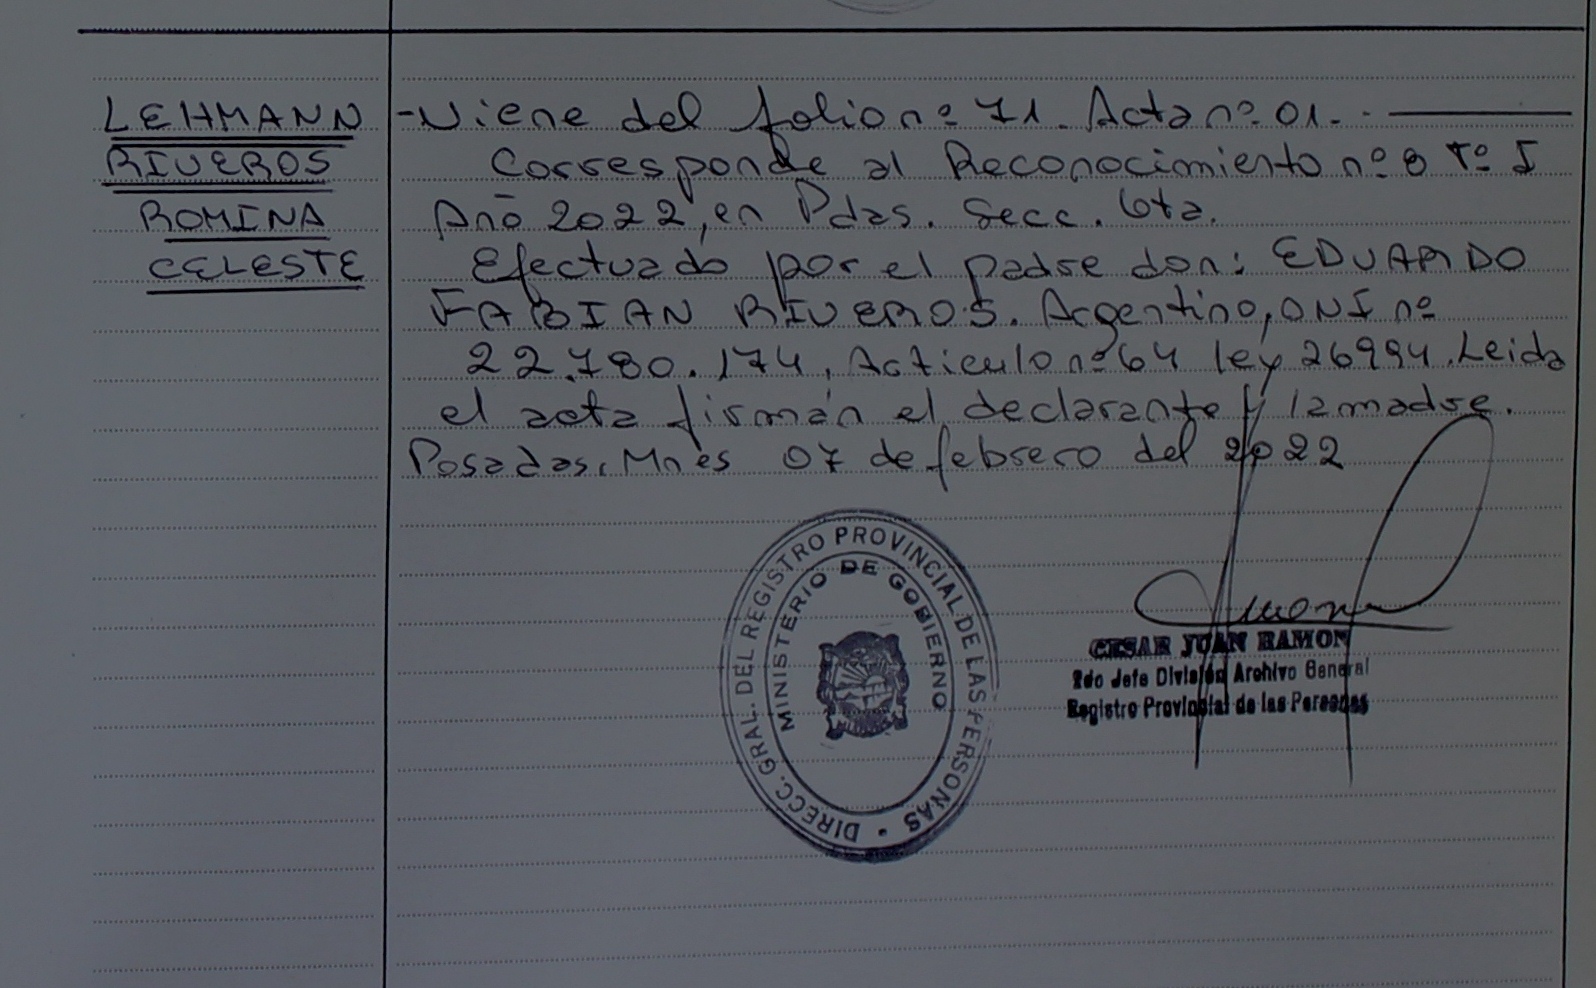 LEHMANN
RIVEROS
ROMINA
CELESTE
-Viene del folio nº 71. Acta nº 01.-
Corresponde al Reconocimiento nº 8 Tº I
Año 2022, en Pdas. Secc. 6ta.
Efectuado por el padre don: EDUARDO
FABIAN RIVEROS. Argentino, DNI nº
22.780.174, Articulo nº 64 ley 26994. Leida
el acta firman el declarante y la madre.
Posadas, Mnes 07 de febrero del 2022
DIRECC. GRAL. DEL REGISTRO PROVINCIAL DE LAS PERSONAS
MINISTERIO DE GOBIERNO
CESAR JUAN RAMON
2do Jefe División Archivo General
Registro Provincial de las Personas